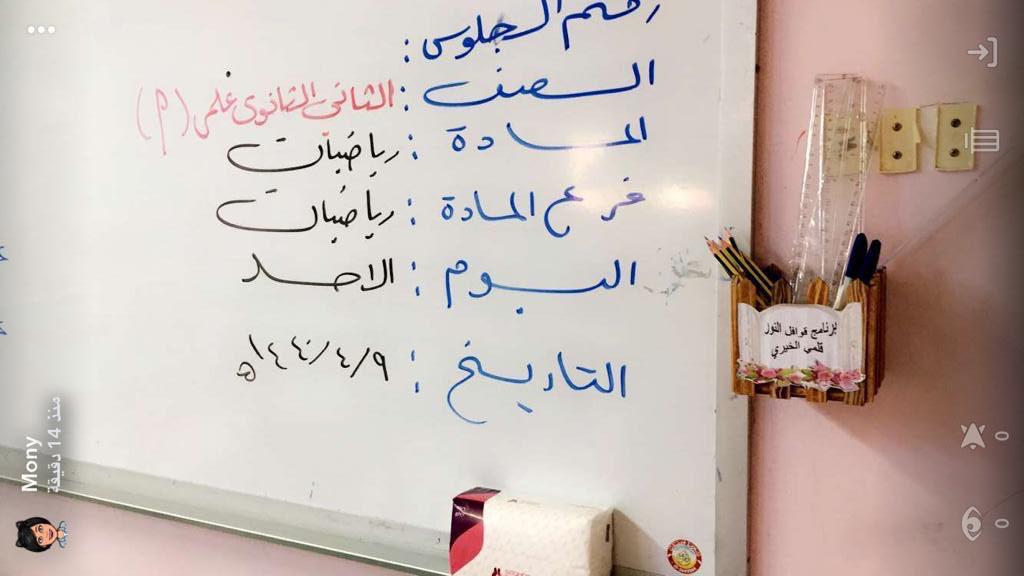 رقم الجلوس :
الصف : الثاني الثانوي علمي (م)
المادة : رياضيات
فرع المادة : رياضيات
اليوم : الاحد
التاريخ : ٩/٤/١٤٤٠ه
برنامج قوافل النور
قلمي الخيري
Mony
منذ 14 دقيقة
0
0